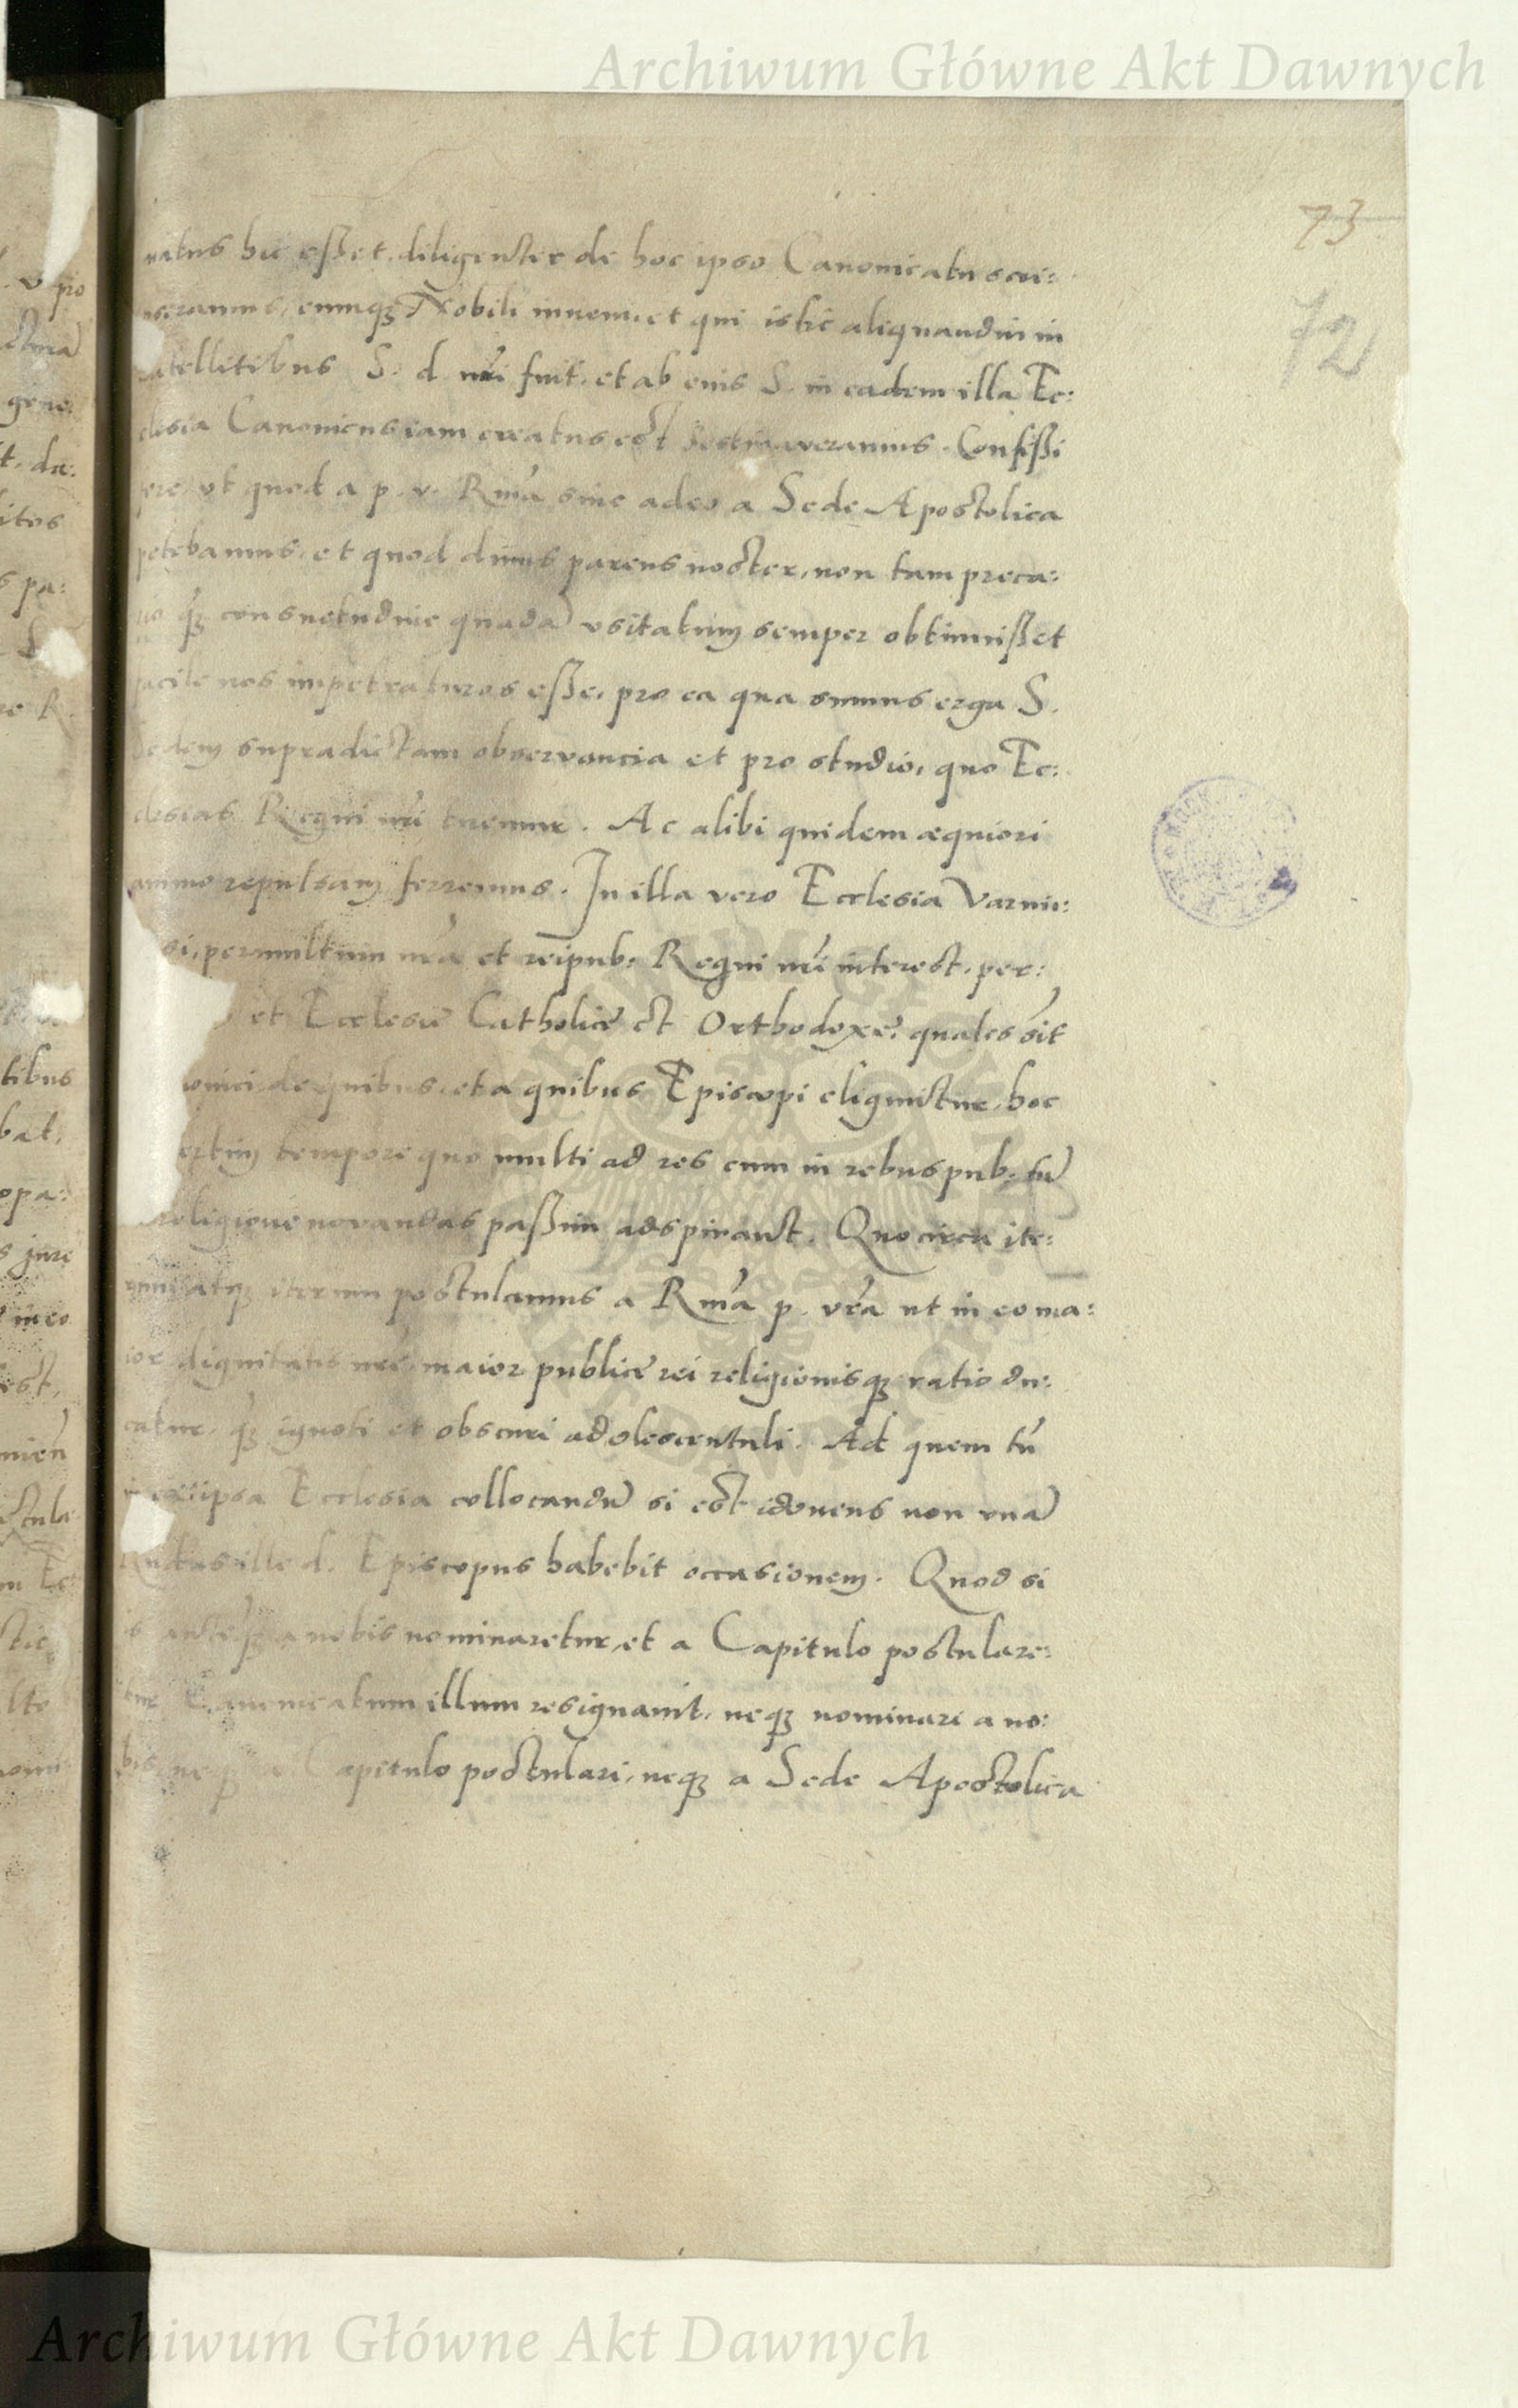 Archiwum Główne Akt Dawnych
73
72
natus hic eßet, diligenter de hoc ipso Canonicatu scri:
pseramus, eumq; Nobili iuueni, et qui istic aliquandiu in
satellitibus S. d. nri fuit, et ab eius S. in eadem illa Ec:
clesia Canonicus iam creatus est destinaueramus. Confißi
fore, ut quod a p. v. Rma siue adeo a Sede Apostolica
petebamus, et quod diuus parens noster, non tam preca:
rio q; consuetudine quada usitatum semper obtinuißet
facile nos impetraturos eße, pro ea qua sumus erga S.
Sedem supradictam obseruancia et pro studio, quo Ec:
clesias Regni nri tuemur. Ac alibi quidem æquiori
animo repulsam ferremus. In illa vero Ecclesia Varmie:
si, permultum nra et reipub: Regni nri interest, per:
et Ecclesie Catholice et Orthodoxe, quales sit
onici de quibus, et a quibus Episcopi eliguntur, hoc
ertim tempore quo multi ad res cum in rebus pub: tu
religione nouandas paßim adspirant. Quocirca ite:
rum atq; iterum postulamus a Rma p. vra ut in eo ma:
ior dignitatis nre, maior publice rei religionisq; ratio du:
catur, q; ignoti et obscuri adolescentuli. Ad quem tu
in ea ipsa Ecclesia collocandu si est idoneus non una
ille d. Episcopus habebit occasionem. Quod si
is anteq; a nobis nominaretur, et a Capitulo postulare:
tur Canonicatum illum resignauit, neq; nominari a no:
bis, neq; a Capitulo postulari, neq; a Sede Apostolica
Archiwum Główne Akt Dawnych